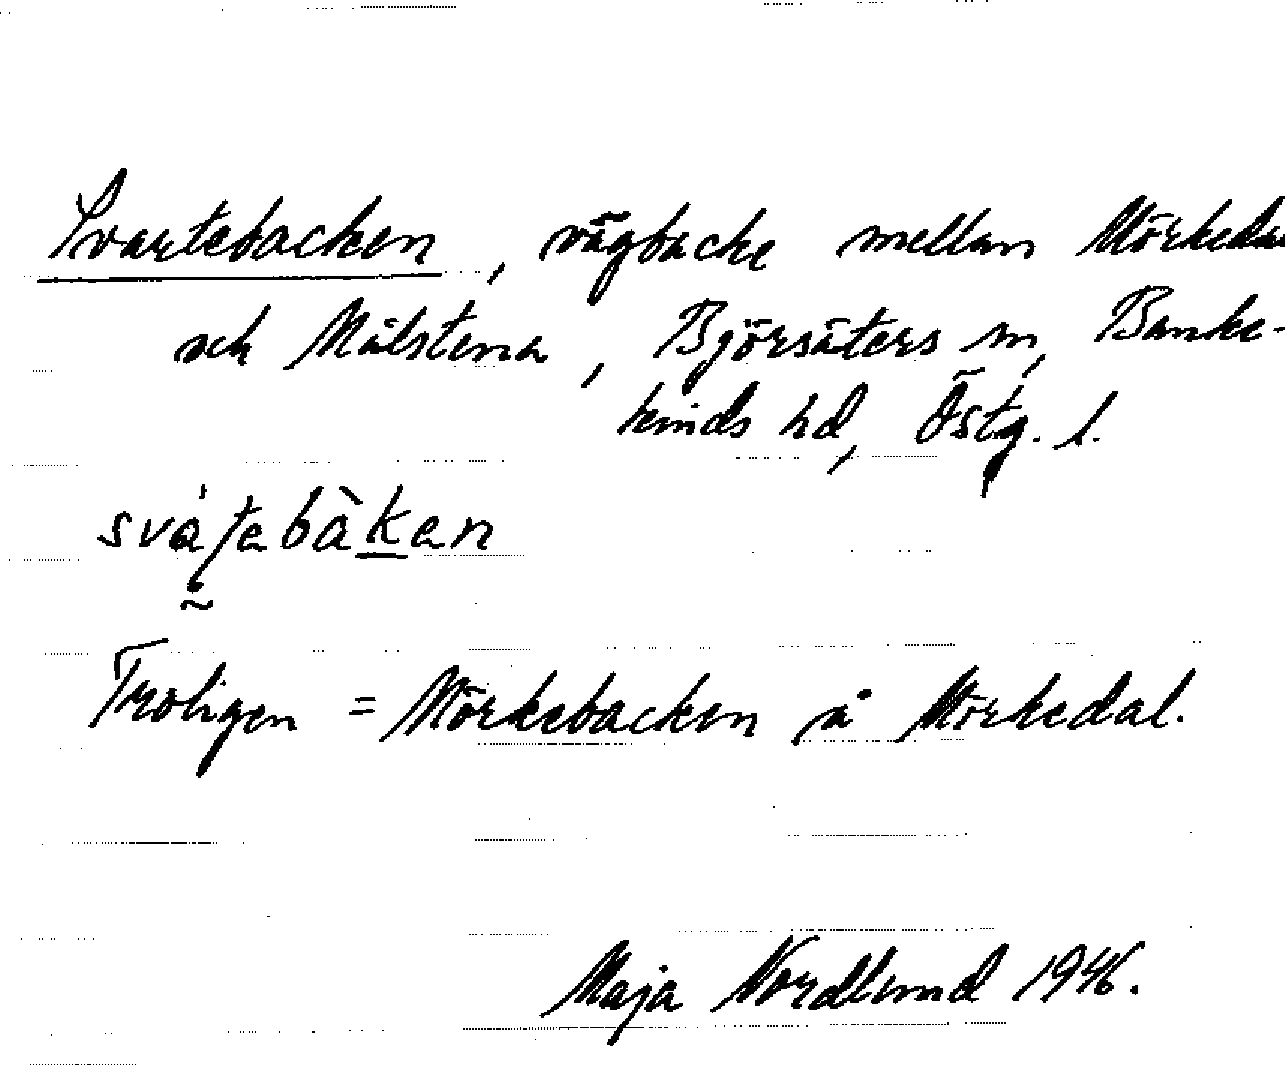 Svartebacken, vägbacke mellan Mörkedal
och Målstena, Björsäters sn, Banke-
kinds hd, Östg. l.
Troligen = Mörkebacken å Mörkedal.
Maja Nordlund 1946.